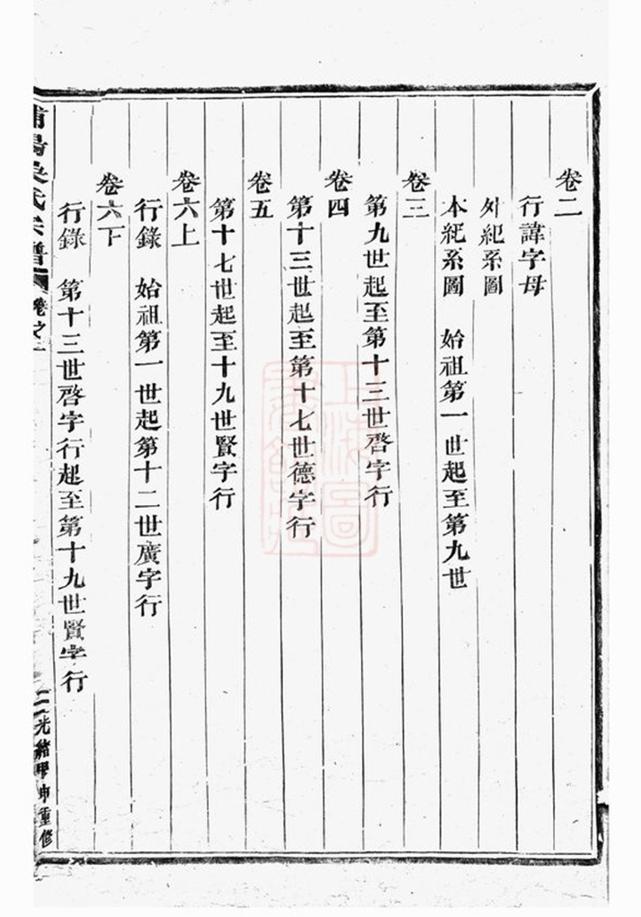 卷二
行諱字母
外紀系圖
本紀系圖　始祖第一世起至第九世
卷三
第九世起至第十三世啓字行
卷四
第十三世起至第十七世德字行
卷五
第十七世起至十九世賢字行
卷六上
行錄　始祖第一世起第十二世廣字行
卷六下
行錄　第十三世啓字行起至第十九世賢字行
浦陽吳氏宗譜　卷之一　二　光緒甲申重修